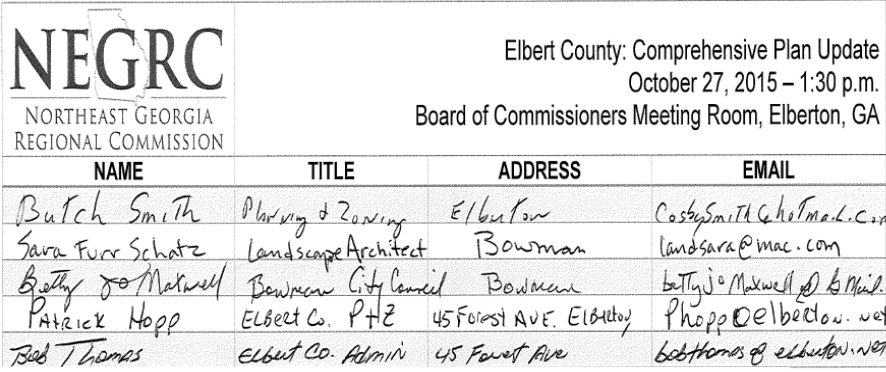 NEGRC
NORTHEAST GEORGIA
REGIONAL COMMISSION
Elbert County: Comprehensive Plan Update
October 27, 2015 – 1:30 p.m.
Board of Commissioners Meeting Room, Elberton, GA
NAME TITLE ADDRESS EMAIL
Butch Smith Planning & Zoning Elberton CosbySmith@hotmail.com
Sara Furr Schatz Landscape Architect Bowman landsara@mac.com
Betty Jo Maxwell Bowman City Council Bowman bettyjomaxwell@
PATRICK HOPP ELBERT CO. P+Z 45 FOREST AVE. ELBERTON Phopp@elberton.net
Bob Thomas Elbert Co. Admin 45 Forest Ave bobthomas@elberton.net